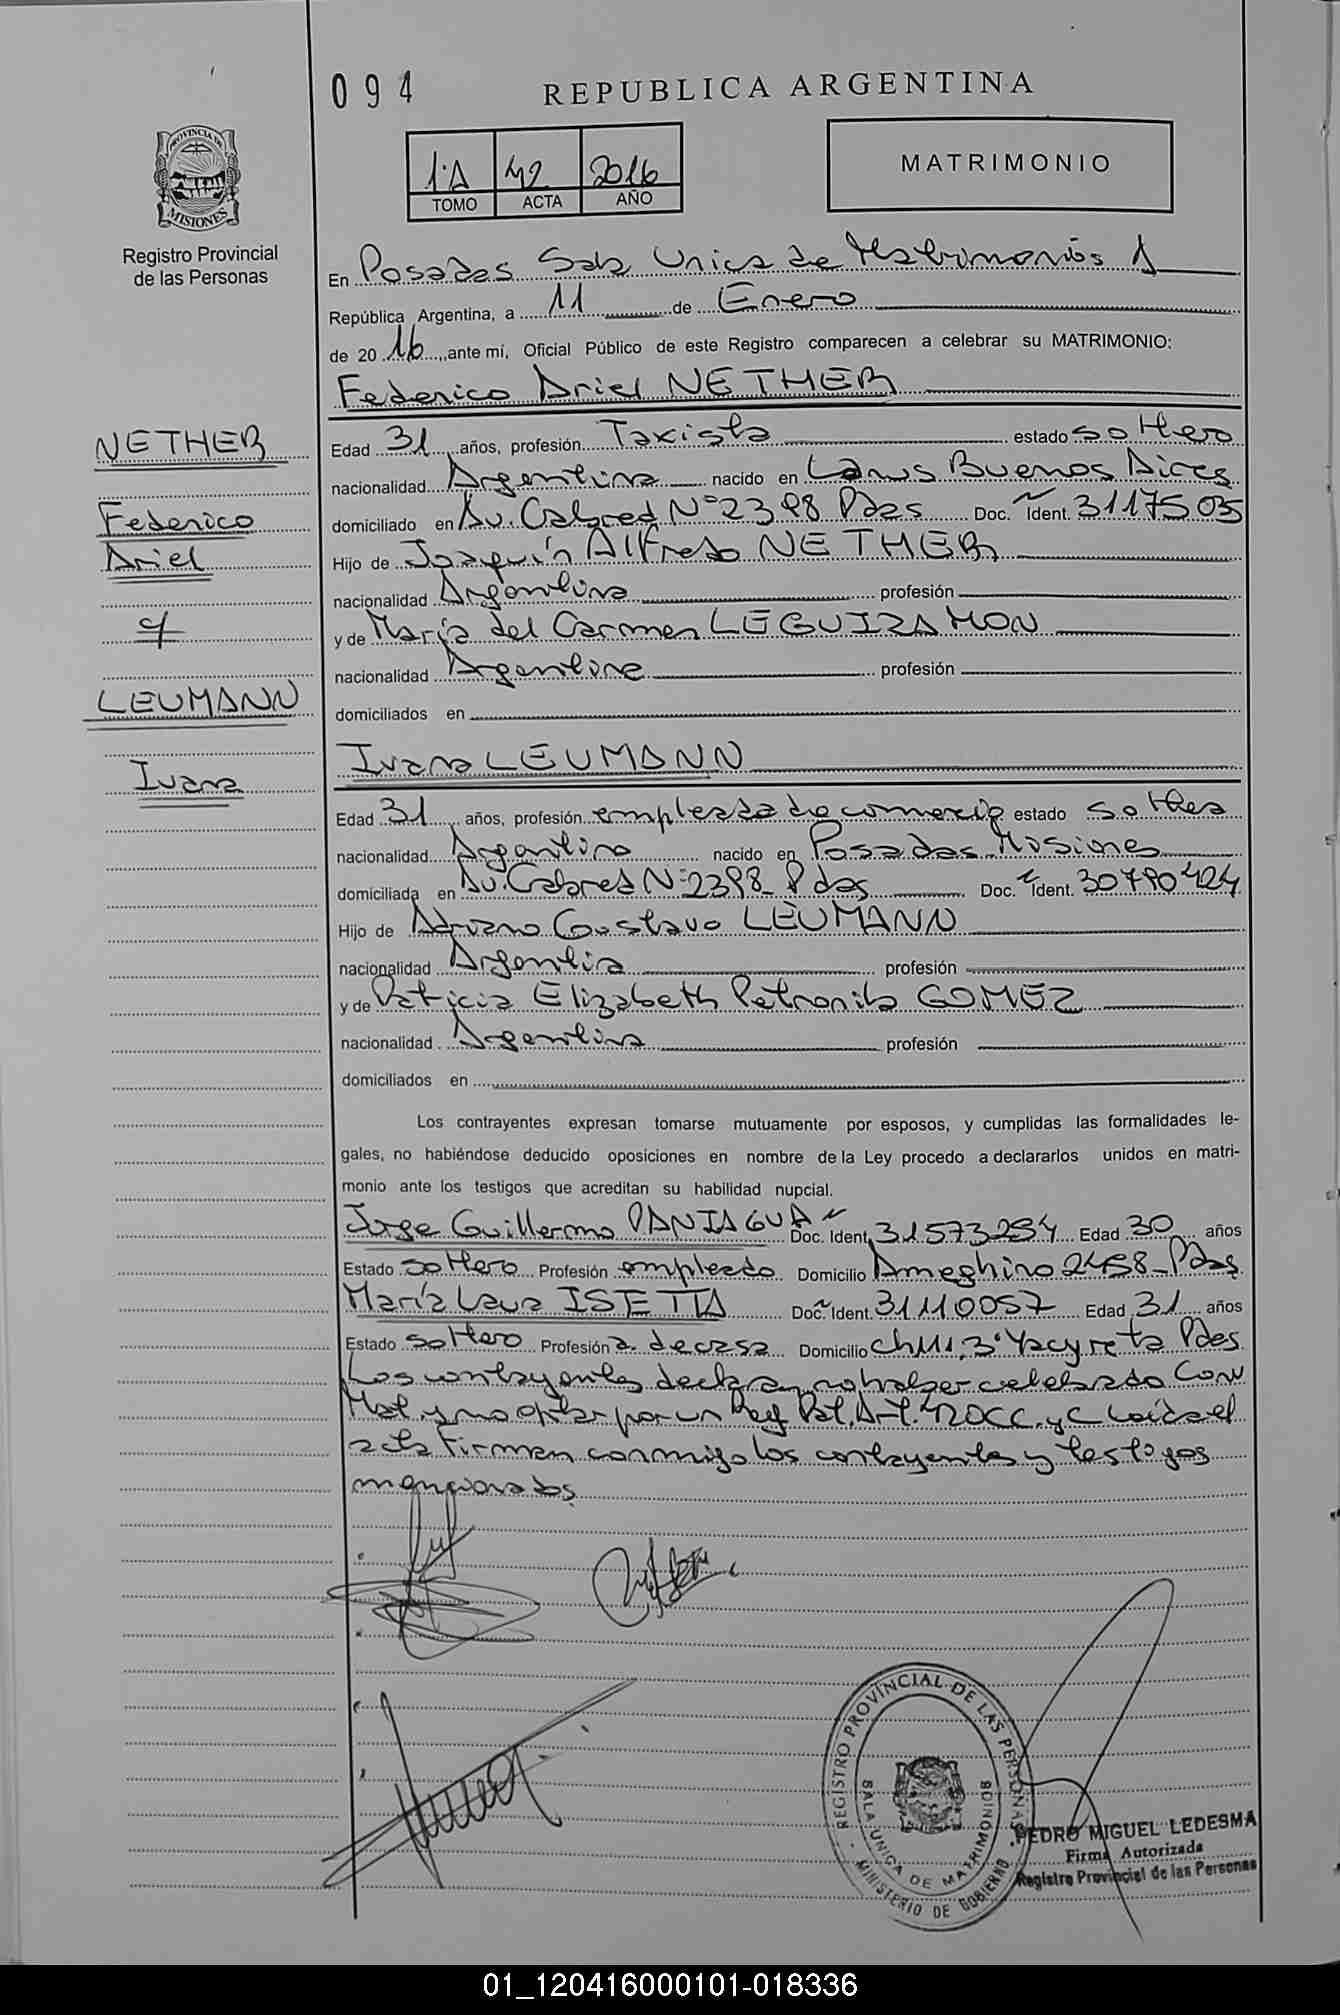 094
REPUBLICA ARGENTINA
PROVINCIA DE
MISIONES
Registro Provincial
de las Personas
1ºA 42 2016
TOMO ACTA AÑO
MATRIMONIO
En Posadas Sala Unica de Matrimonios 1
República Argentina, a 11 de Enero
de 2016, ante mí, Oficial Público de este Registro comparecen a celebrar su MATRIMONIO:
Federico Ariel NETHER
NETHER
Federico
Ariel
c/
LEUMANN
Ivana
Edad 31 años, profesión Taxista estado soltero
nacionalidad Argentina nacido en Lanus Buenos Aires
domiciliado en Av. Cabred Nº 2398 Pdas Doc. Ident. 31175035
Hijo de Joaquín Alfredo NETHER
nacionalidad Argentina profesión
y de María del Carmen LEGUIZAMON
nacionalidad Argentina profesión
domiciliados en
Ivana LEUMANN
Edad 31 años, profesión empleada de comercio estado soltera
nacionalidad Argentina nacido en Posadas Misiones
domiciliada en Av. Cabred Nº 2398 Pdas Doc. Ident. 30790424
Hijo de Adriano Gustavo LEUMANN
nacionalidad Argentina profesión
y de Patricia Elizabeth Petronila GOMEZ
nacionalidad Argentina profesión
domiciliados en
Los contrayentes expresan tomarse mutuamente por esposos, y cumplidas las formalidades le-
gales, no habiéndose deducido oposiciones en nombre de la Ley procedo a declararlos unidos en matri-
monio ante los testigos que acreditan su habilidad nupcial.
Jorge Guillermo PANIAGUA Doc. Ident. 31573254 Edad 30 años
Estado soltero Profesión empleado Domicilio Ameghino 2458 Pdas
María Laura ISETTA Doc. Ident. 31110057 Edad 31 años
Estado soltero Profesión a. de casa Domicilio Ch 111, 3º Yacyreta Pdas
Los contrayentes declaran no haber celebrado Conv
Mat. y no optar por un Reg Pat. Art. 420CC. y C Leída el
acta firman conmigo los contrayentes y testigos
mencionados
REGISTRO PROVINCIAL DE LAS PERSONAS
SALA UNICA DE MATRIMONIOS
MINISTERIO DE GOBIERNO
PEDRO MIGUEL LEDESMA
Firma Autorizada
Registro Provincial de las Personas
01_120416000101-018336